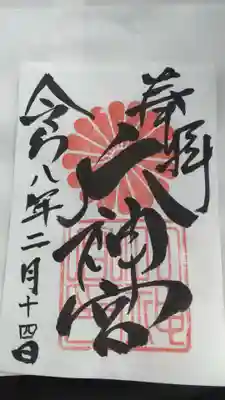 奉拝
大神宮
令和八年二月十四日